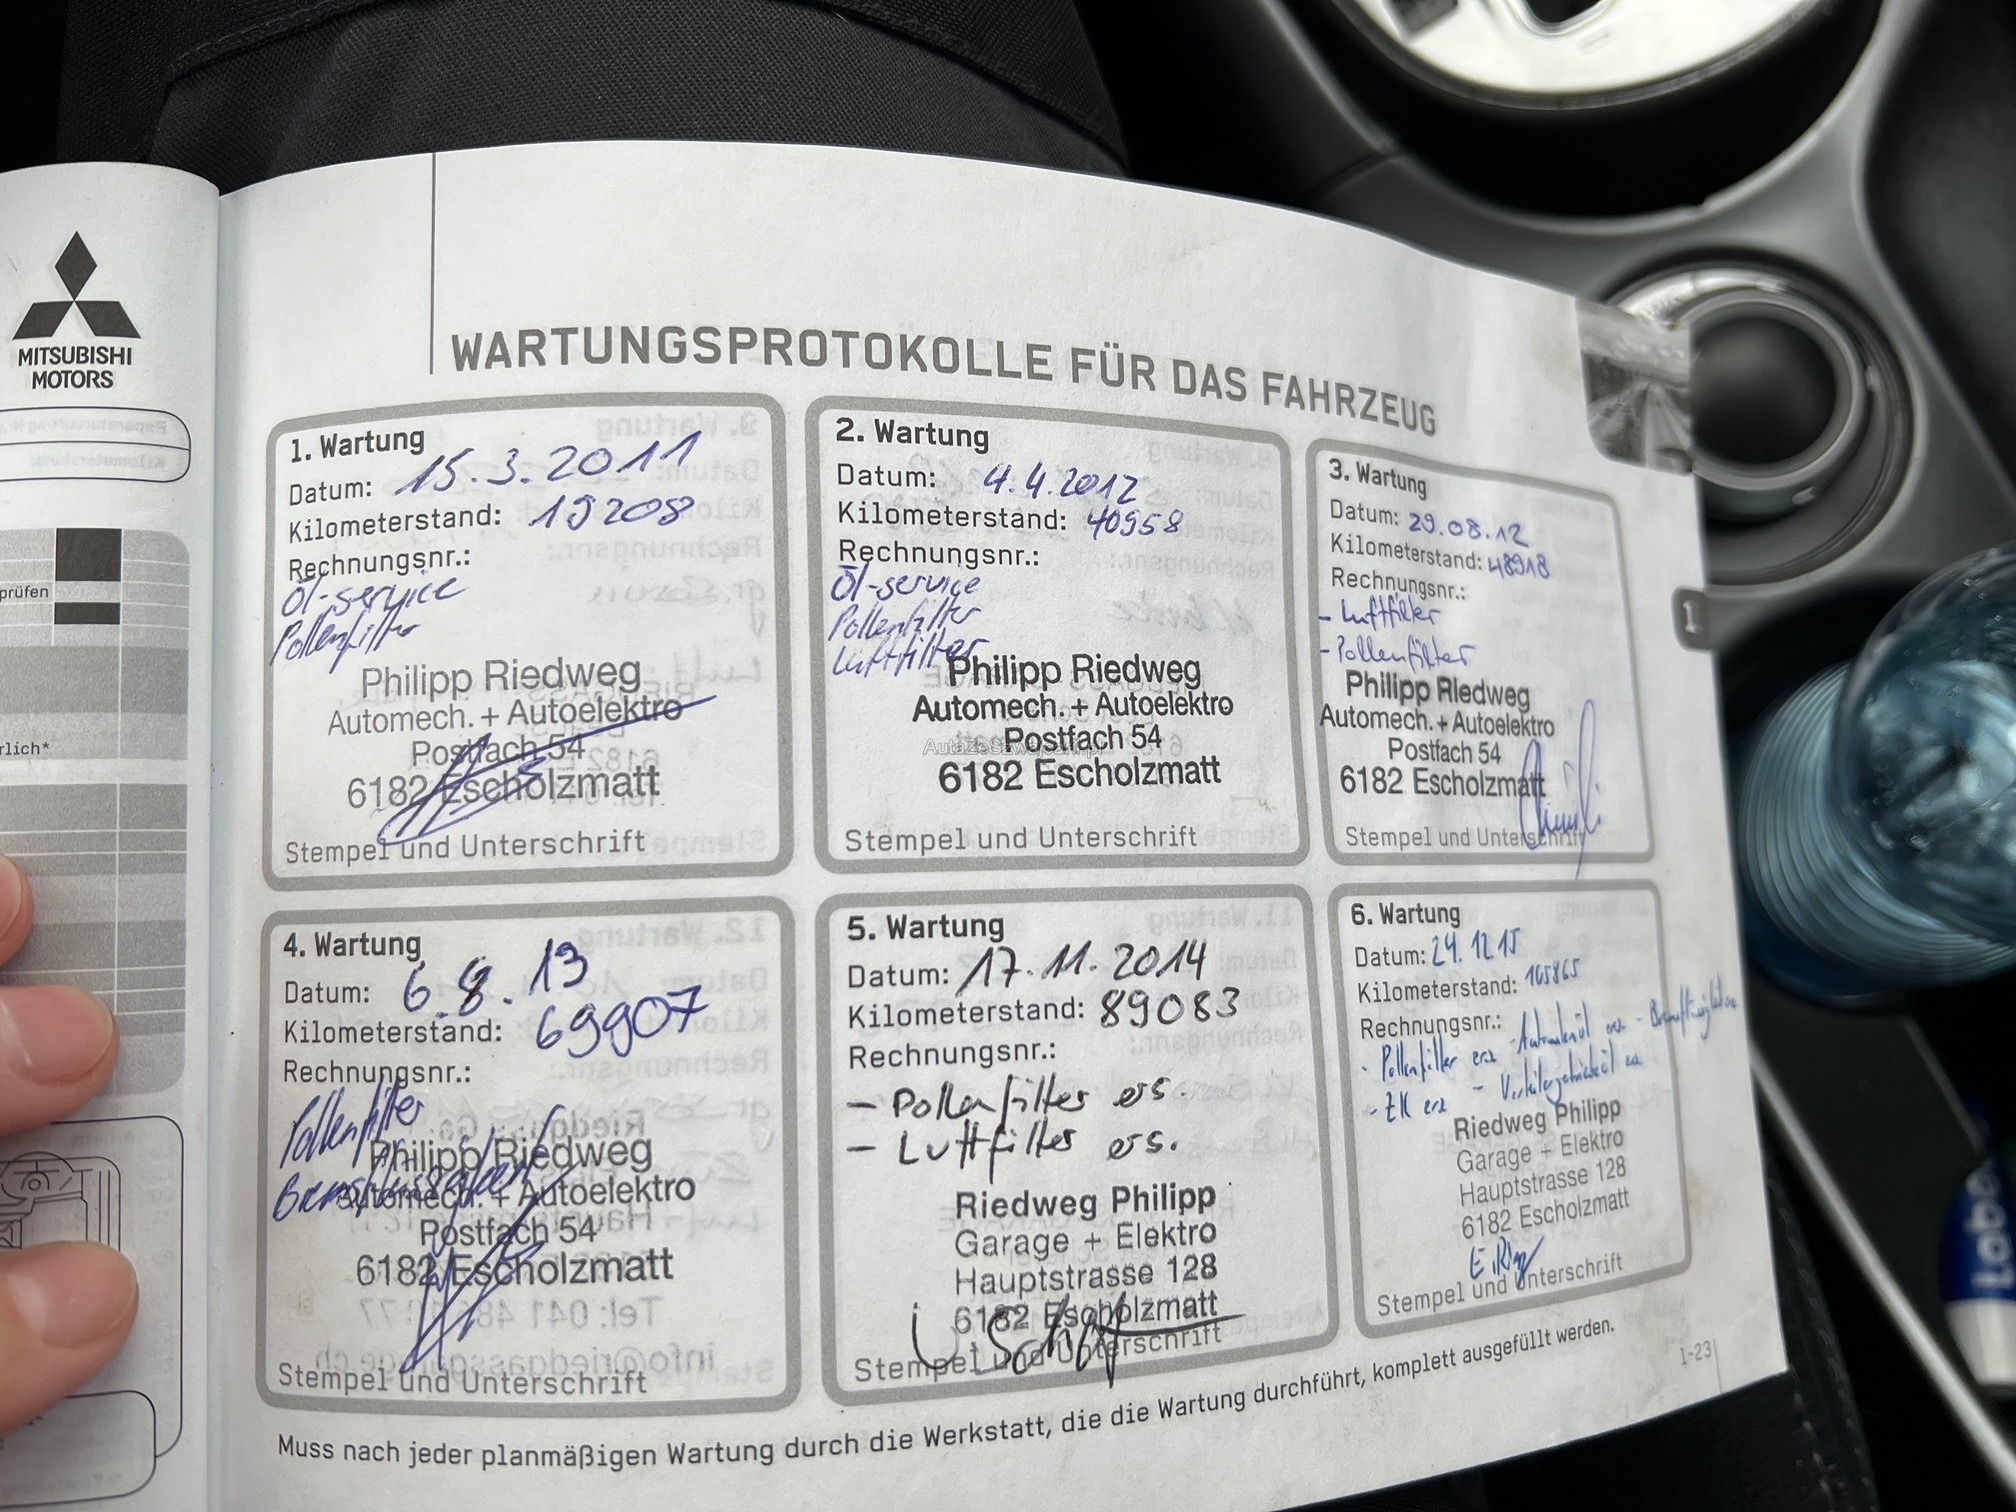 MITSUBISHI
MOTORS
prüfen
rlich*
WARTUNGSPROTOKOLLE FÜR DAS FAHRZEUG
1. Wartung
Datum: 15.3.2011
Kilometerstand: 19208
Rechnungsnr.:
Öl-service
Pollenfilter
Philipp Riedweg
Automech. + Autoelektro
Postfach 54
6182 Escholzmatt
Stempel und Unterschrift
2. Wartung
Datum: 4.4.2012
Kilometerstand: 40958
Rechnungsnr.:
Öl-service
Pollenfilter
Luftfilter
Philipp Riedweg
Automech. + Autoelektro
Postfach 54
6182 Escholzmatt
Stempel und Unterschrift
3. Wartung
Datum: 29.08.12
Kilometerstand: 48918
Rechnungsnr.:
- Luftfilter
- Pollenfilter
Philipp Riedweg
Automech. + Autoelektro
Postfach 54
6182 Escholzmatt
Stempel und Unterschrift
1
4. Wartung
Datum: 6.8.13
Kilometerstand: 69907
Rechnungsnr.:
Pollenfilter
Philipp Riedweg
Automech. + Autoelektro
Postfach 54
6182 Escholzmatt
Stempel und Unterschrift
5. Wartung
Datum: 17.11.2014
Kilometerstand: 89083
Rechnungsnr.:
- Pollenfilter ers.
- Luftfilter ers.
Riedweg Philipp
Garage + Elektro
Hauptstrasse 128
6182 Escholzmatt
Stempel und Unterschrift
6. Wartung
Datum: 24.12.15
Kilometerstand: 105865
Rechnungsnr.:
- Pollenfilter ers
Riedweg Philipp
Garage + Elektro
Hauptstrasse 128
6182 Escholzmatt
Stempel und Unterschrift
Muss nach jeder planmäßigen Wartung durch die Werkstatt, die die Wartung durchführt, komplett ausgefüllt werden.
1-23
Labe